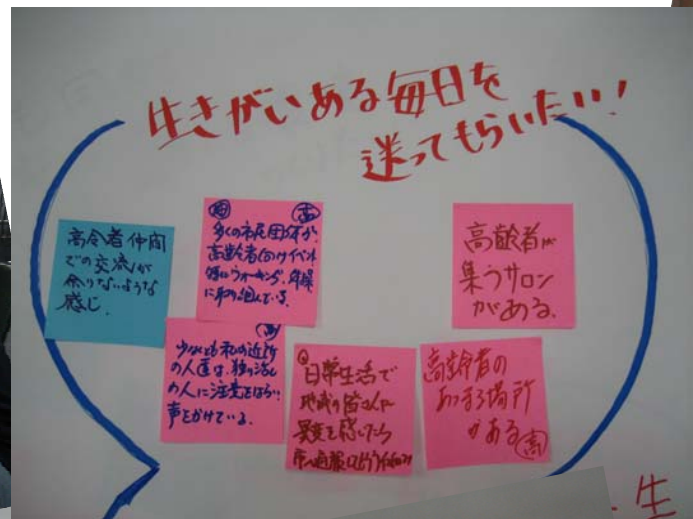 生きがいある毎日を
送ってもらいたい!
高令者仲間
での交流が
余りないような
感じ.
高
多くの市民団体が、
高齢者向けイベント
特にウォーキング、体操
に取り組んでいる.
高齢者が
集うサロン
がある.
高
少なくとも私の近所
の人達は、独り活し
の人に注意をはらい
声をかけている.
日常生活で
地域の皆さんが
異変を感じたら
市へ通報
高齢者の
あつまる場所
がある 高
・生